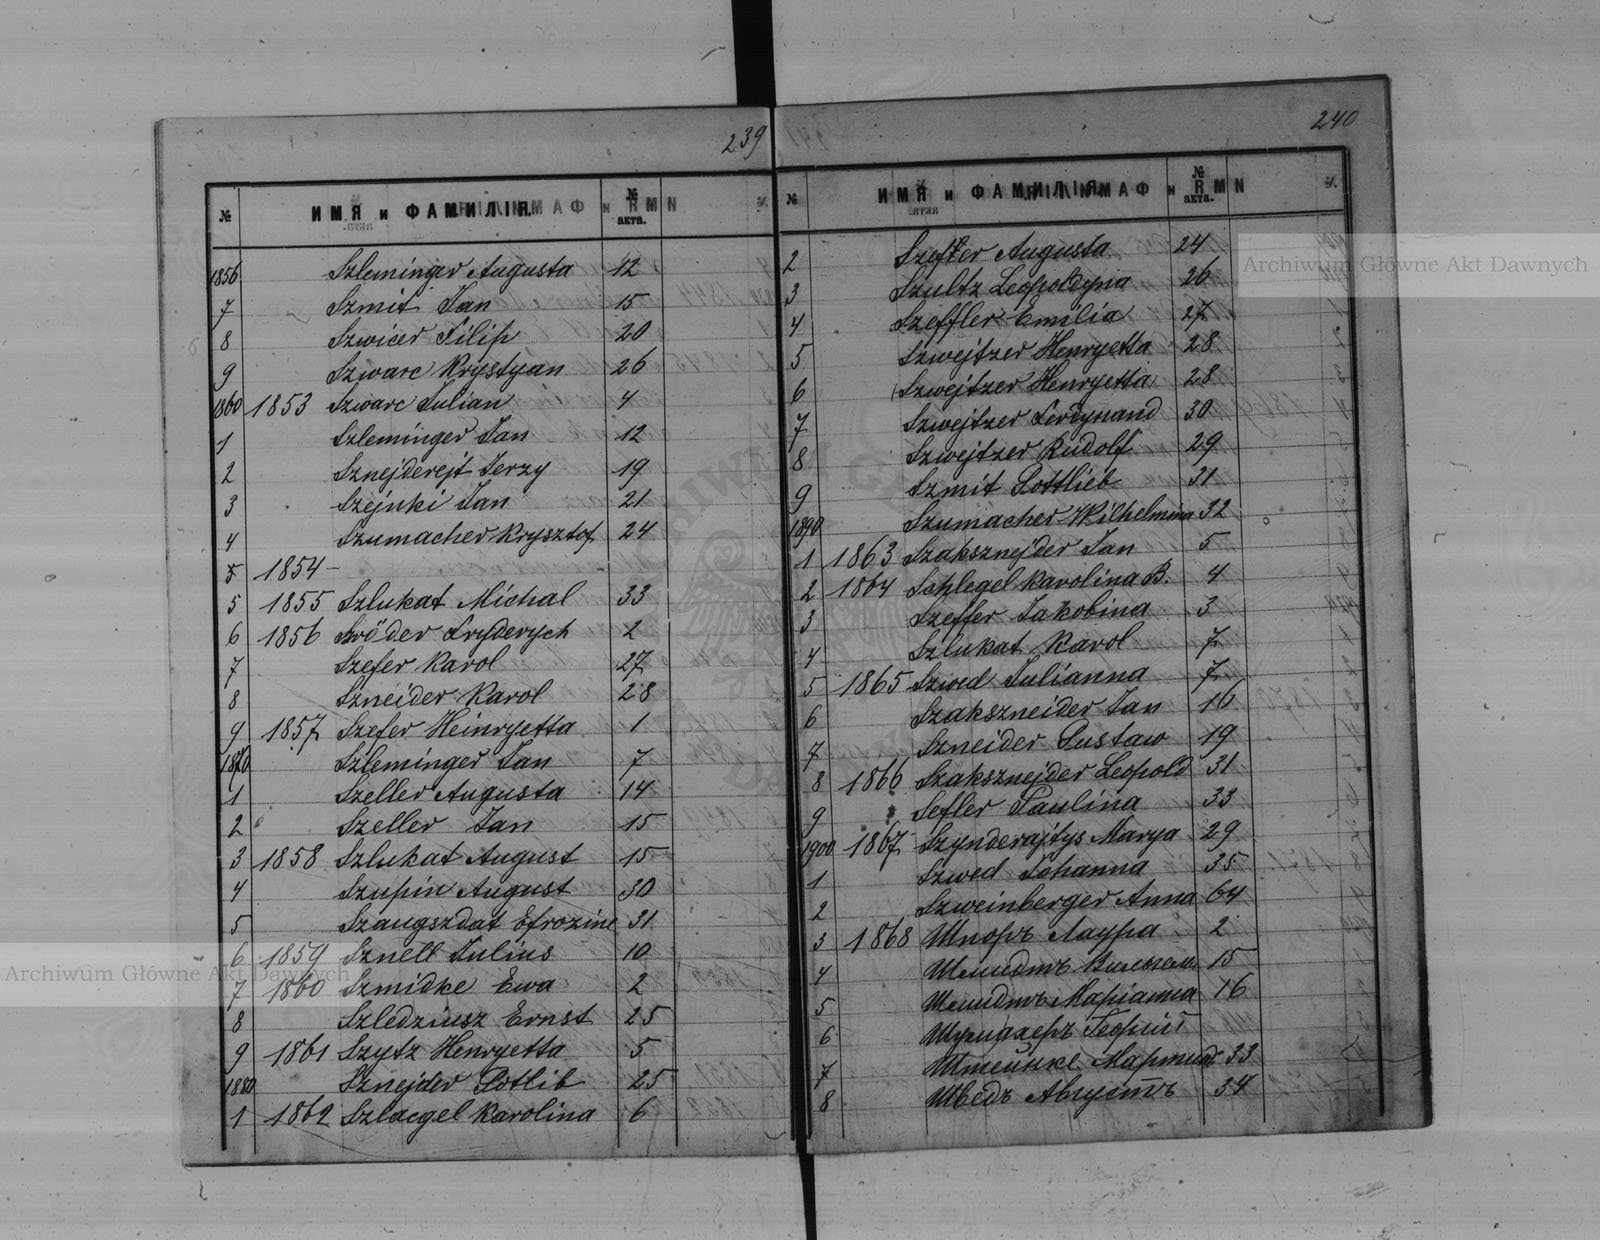 239
№ ИМЯ и ФАМИЛІЯ. № акта.
1856 Szleminger Augusta 12
7 Szmit Jan 15
8 Szwicer Filip 20
9 Szwarc Krystyan 26
1860 1853 Szwarc Julian 4
1 Szleminger Jan 12
2 Sznejderejt Jerzy 19
3 Szejnki Jan 21
4 Szumacher Krysztof 24
5 1854 —
5 1855 Szlukat Michal 33
6 1856 Sröder Fryderych 2
7 Szefer Karol 27
8 Szneider Karol 28
9 1857 Szefer Heinryetta 1
1870 Szleminger Jan 7
1 Szeller Augusta 14
2 Szeller Jan 15
3 1858 Szlukat August 15
4 Szupin August 30
5 Szaugszdat Efrozine 31
6 1859 Sznell Julius 10
7 1860 Szmidke Ewa 2
8 Szledziusz Ernst 25
9 1861 Szytz Henryetta 5
1880 Sznejder Gotlib 25
1 1862 Szlaegel Karolina 6
240
№ ИМЯ и ФАМИЛІЯ № акта.
2 Szefler Augusta 24
3 Szultz Leopoldyna 26
4 Szeffler Emilia 27
5 Szwejtzer Henryetta 28
6 Szwejtzer Henryetta 28
7 Szwejtzer Ferdynand 30
8 Szwejtzer Rudolf 29
9 Szmit Gottlieb 31
1890 Szumacher Wilhelmina 32
1 1863 Szaksznejder Jan 5
2 1864 Schlegel Karolina B. 4
3 Szeffer Jakobina 3
4 Szlukat Karol 7
5 1865 Szwed Julianna 7
6 Szakszneider Jan 16
7 Szneider Gustaw 19
8 1866 Szaksznejder Leopold 31
9 Sefler Paulina 33
1900 1867 Szynderajtys Marya 29
1 Szwed Johanna 35
2 Szweinberger Anna 64
3 1868 Шпоръ Лаура 2
4 Шмидтъ Вильгелм. 15
5 Шмидтъ Маріанна 16
6 Шумахеръ Георгій
7 Штейнке 33
8 Шведъ Августъ 34
Archiwum Główne Akt Dawnych
Archiwum Główne Akt Dawnych